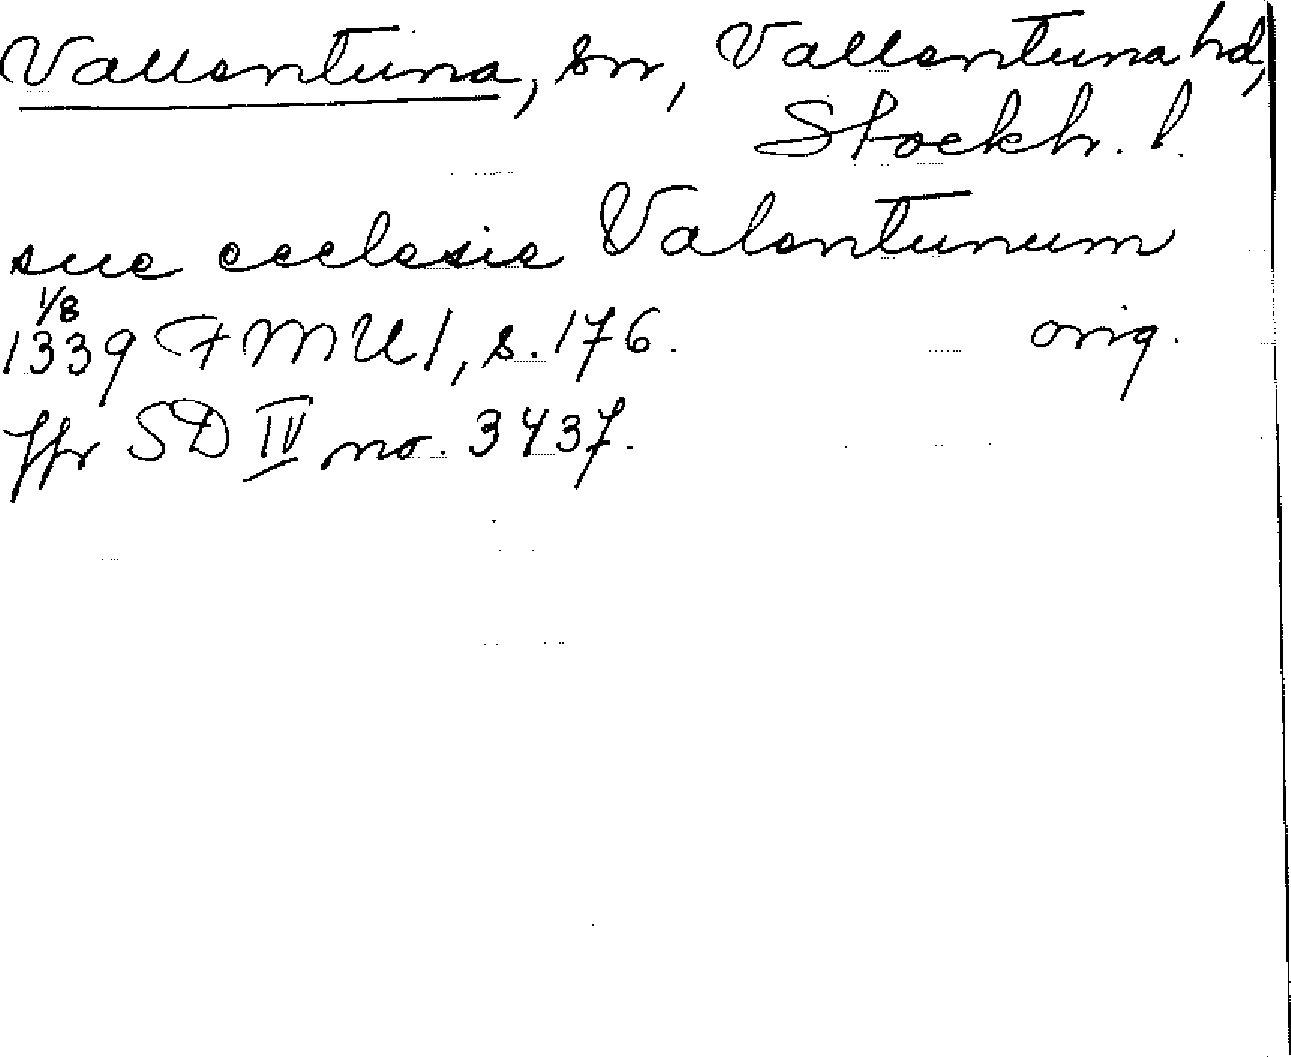 Vallentuna, sn, Vallentuna hd,
Stockh. l.
sue ecclesie Valentunum
1/8
1339 FMU 1, s. 176. orig.
Jfr SD IV no. 3437.